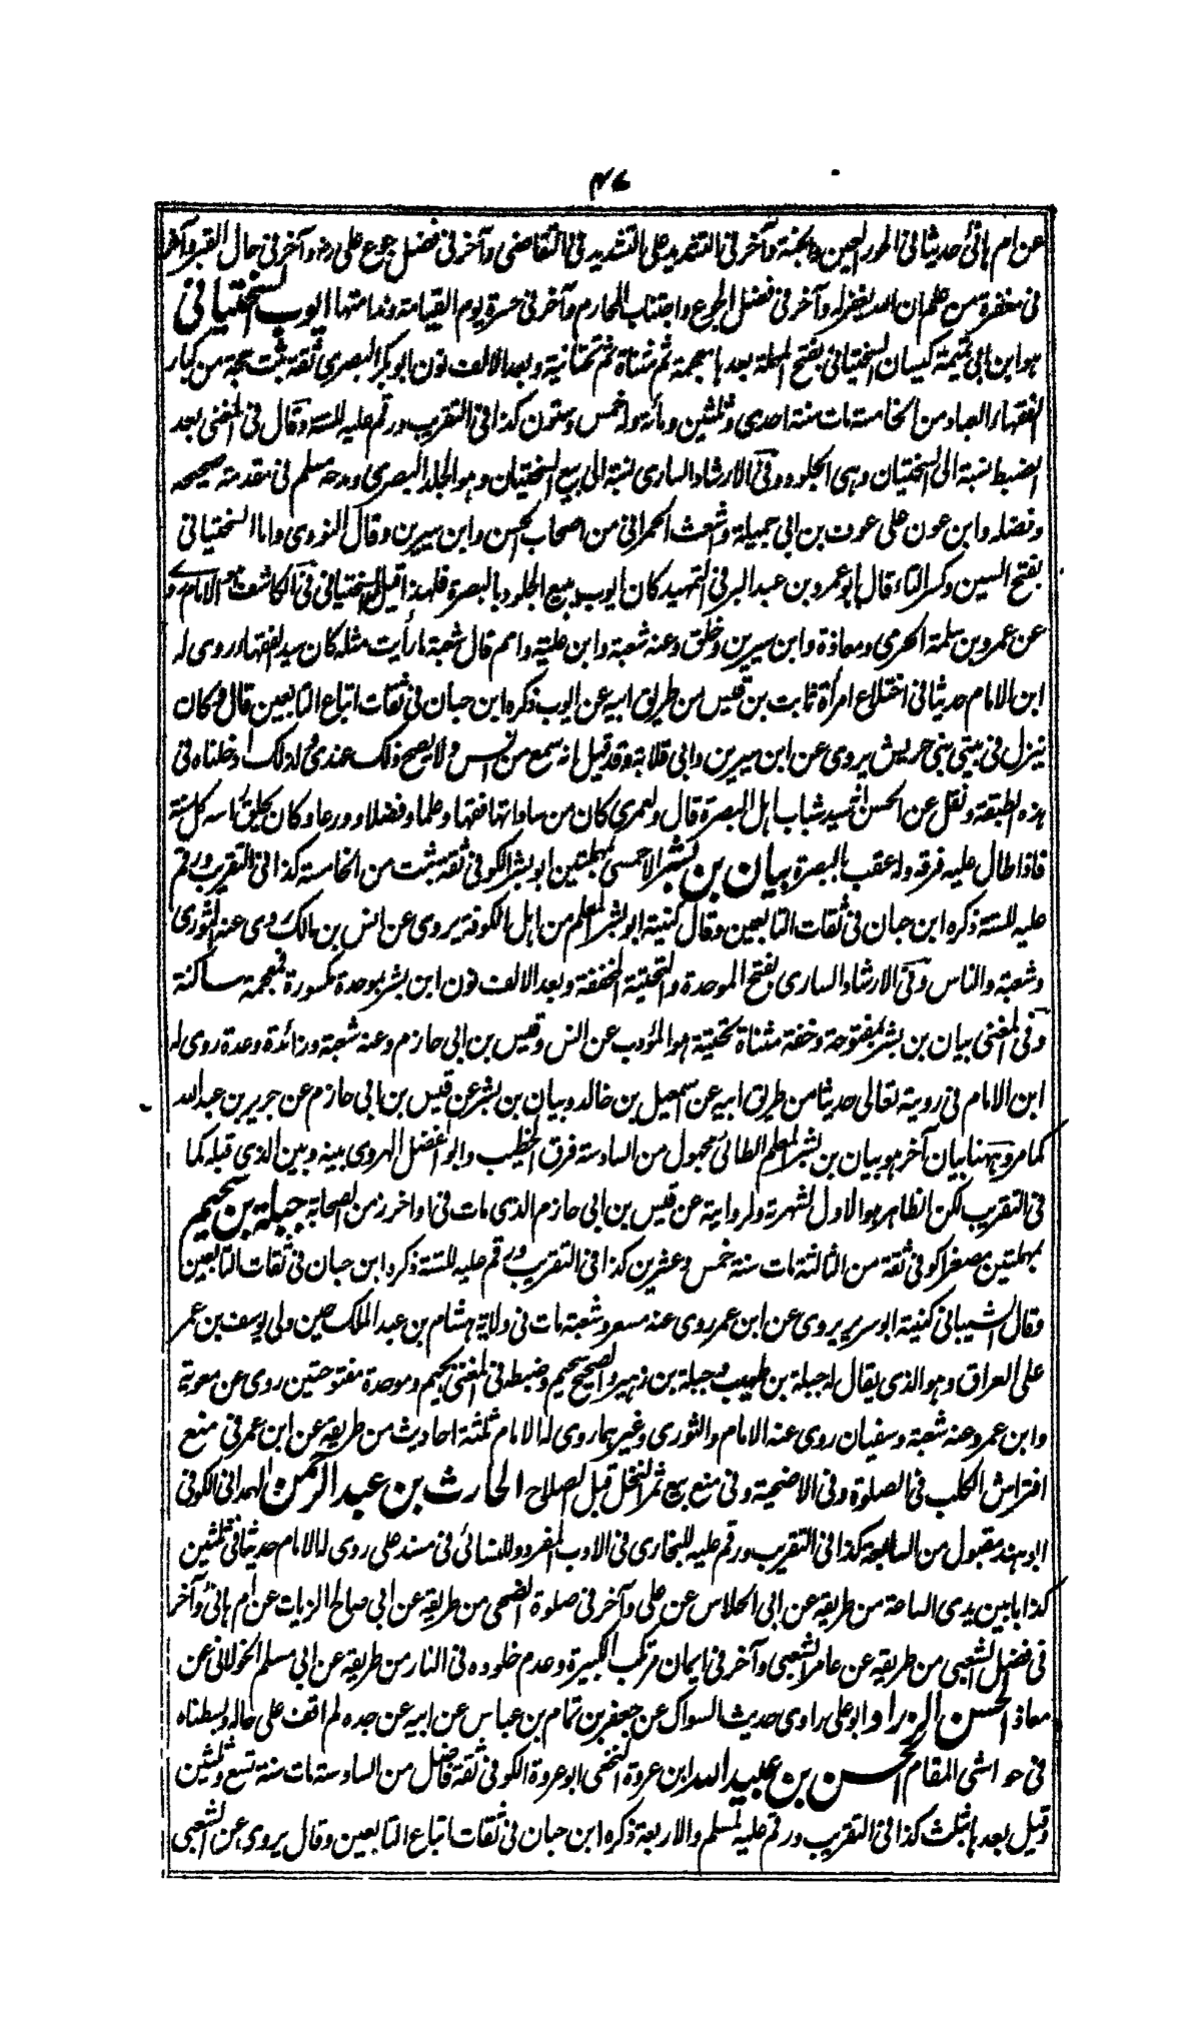 ٤٧
عن ام هانئ حديثا في الحور العين والجنة وآخر في التقديد على التشديد في التقاضي وآخر في فضل جوع على رض وآخر في حال القبر وآخر
في مغفرة من علم ان الله يغفر له وآخر في فضل الجوع واجتناب المحارم وآخر في حسرة يوم القيامة وندامتها ايوب السختياني
هو ابن ابي تميمة كيسان السختياني بفتح المهملة بعدها معجمة ثم مثناة ثم تحتانية وبعد الالف نون ابو بكر البصري ثقة ثبت حجة من كبار
الفقهاء العباد من الخامسة مات سنة احدى وثلثين ومائة وله خمس وستون كذا في التقريب ورقم عليه للستة وقال في المغنى بعد
الضبط نسبة الى السختيان وهي الجلود وفي الارشاد الساري نسبة الى بيع السختيان وهو الجلد البصري ومدحه مسلم في مقدمة صحيحه
وفضله وابن عون على عوف بن ابي جميلة واشعث الحمراني من اصحاب الحسن وابن سيرين وقال النووي واما السختياني
بفتح السين وكسر التاء قال ابو عمرو بن عبد البر في التمهيد كان ايوب يبيع الجلود بالبصرة فلهذا قيل السختياني وفي الكاشف الامام
عن عمرو بن سلمة الجرمي ومعاذة وابن سيرين وخلق وعنه شعبة وابن علية وامم قال شعبة ما رأيت مثله كان سيد الفقهاء روى له
ابن الامام حديثا في اختلاع امرأة ثابت بن قيس من طريق ابيه عن ايوب ذكره ابن حبان في ثقات اتباع التابعين قال وكان
ينزل في بني حريش يروي عن ابن سيرين وابي قلابة وقد قيل انه سمع من انس ولا يصح ذلك عندي فلذلك ادخلناه في
هذه الطبقة ونقل عن الحسن سيد شباب اهل البصرة قال ولعمري كان من ساداتها فقها وعلما وفضلا وورعا وكان يحلق رأسه كل سنة
فاذا طال عليه فرقه وله عقب بالبصرة بيان بن بشر الاحمسي بمهملتين ابو بشر الكوفي ثقة ثبت من الخامسة كذا في التقريب ورقم
عليه للستة ذكره ابن حبان في ثقات التابعين وقال كنيته ابو بشر المعلم من اهل الكوفة يروي عن انس بن مالك روى عنه الثوري
وشعبة والناس وفي الارشاد الساري بفتح الموحدة والتحتية المخففة وبعد الالف نون ابن بشر بموحدة مكسورة فمعجمة ساكنة
وفي المغنى بيان بن بشر بمفتوحة وخفة مثناة تحتية هو المؤدب عن انس وقيس بن ابي حازم وعنه شعبة وزائدة وعدة روى له
ابن الامام في روية تعالى حديثا من طريق ابيه عن اسمعيل بن خالد وبيان بن بشر عن قيس بن ابي حازم عن جرير بن عبد الله
كما مر وههنا بيان آخر هو بيان بن بشر المعلم الطائي مجهول من السادسة فرق الخطيب وابو الفضل الهروي بينه وبين الذي قبله كما
في التقريب لكن الظاهر هو الاول لشهرته ولروايته عن قيس بن ابي حازم الذي مات في اواخر زمن الصحابة جبلة بن سحيم
بمهملتين مصغرا كوفي ثقة من الثالثة مات سنة خمس وعشرين كذا في التقريب ورقم عليه للستة ذكره ابن حبان في ثقات التابعين
وقال الشيباني كنيته ابو سريرة يروي عن ابن عمر روى عنه مسعر وشعبة مات في ولاية هشام بن عبد الملك حين ولى يوسف بن عمر
على العراق وهو الذي يقال له جبلة بن صهيب وجبلة بن زهير والصحيح سحيم وضبط في المغنى بجيم وموحدة مفتوحتين روى عن معوية
وابن عمر وعنه شعبة وسفيان روى عنه الامام والثوري وغيرهما روى له الامام ثلثة احاديث من طريقه عن ابن عمر في منع
افتراش الكلب في الصلوة وفي الاضحية وفي منع بيع ثمر النخل قبل الصلاح الحارث بن عبد الرحمن الهمداني الكوفي
ابو هند مقبول من السابعة كذا في التقريب ورقم عليه للبخاري في الادب المفرد وللنسائي في مسند علي روى له الامام حديثا في ثلثين
كذابا بين يدي الساعة من طريقه عن ابي الجلاس عن علي وآخر في صلوة الضحى من طريقه عن ابي صالح الزيات عن ام هانئ وآخر
في فضل الشعبي من طريقه عن عامر الشعبي وآخر في ايمان مرتكب الكبيرة وعدم خلوده في النار من طريقه عن ابي مسلم الخولاني عن
معاذ الحسن الزراد ابو علي راوي حديث السواك عن جعفر بن تمام بن عباس عن ابيه عن جده لم اقف على حاله وبسطناه
في حواشي المقام الحسن بن عبيد الله ابن عروة النخعي ابو عروة الكوفي ثقة فاضل من السادسة مات سنة تسع وثلثين
وقيل بعدها بثلث كذا في التقريب ورقم عليه لمسلم والاربعة ذكره ابن حبان في ثقات اتباع التابعين وقال يروي عن الشعبي